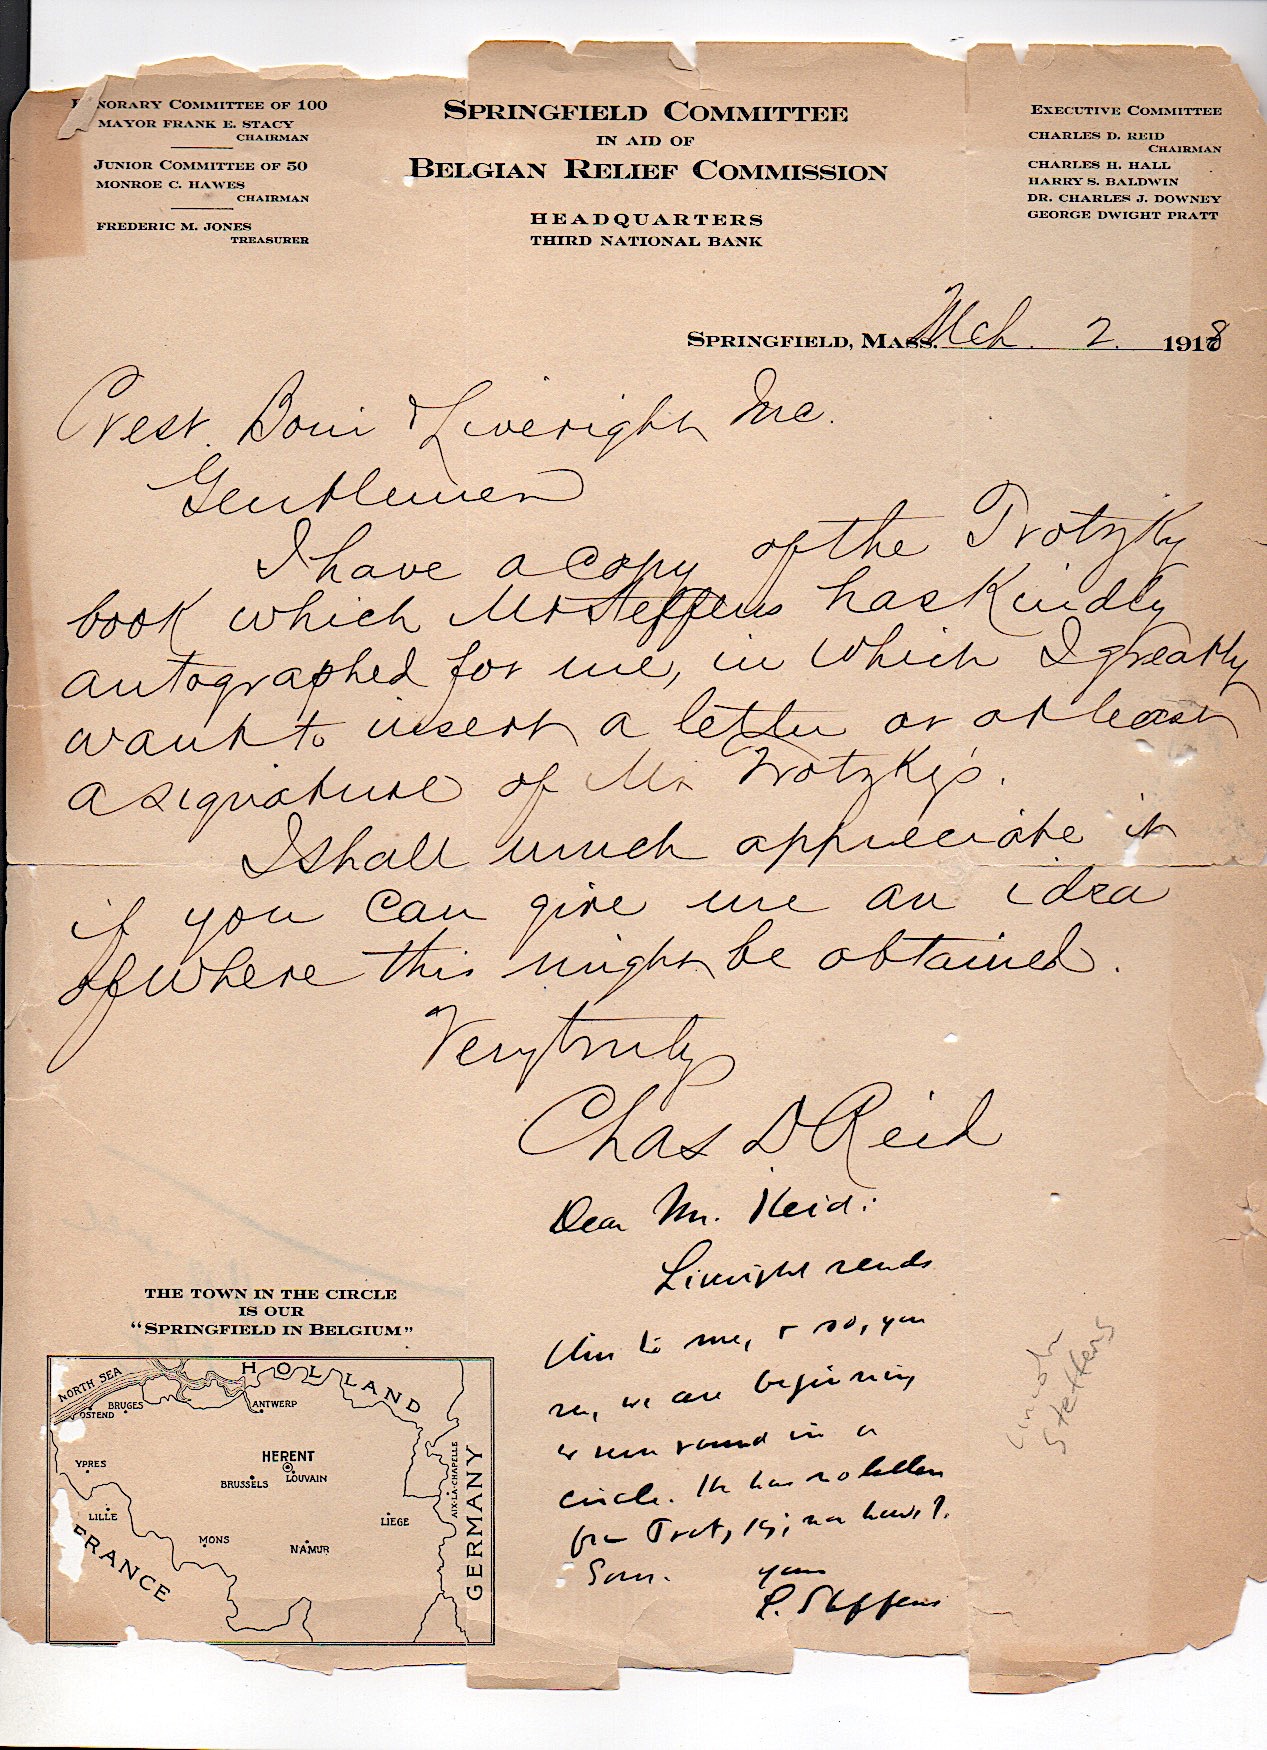 HONORARY COMMITTEE OF 100
MAYOR FRANK E. STACY
CHAIRMAN
JUNIOR COMMITTEE OF 50
MONROE C. HAWES
CHAIRMAN
FREDERIC M. JONES
TREASURER
SPRINGFIELD COMMITTEE
IN AID OF
BELGIAN RELIEF COMMISSION
HEADQUARTERS
THIRD NATIONAL BANK
EXECUTIVE COMMITTEE
CHARLES D. REID
CHAIRMAN
CHARLES H. HALL
HARRY S. BALDWIN
DR. CHARLES J. DOWNEY
GEORGE DWIGHT PRATT
SPRINGFIELD, MASS. Mch. 2. 1918
Boni & Liveright Inc.
Gentlemen
I have a copy of the Trotzky
book which Mr Steffens has kindly
autographed for me, in which I greatly
want to insert a letter or at least
a signature of Mr Trotzky's.
I shall much appreciate it
if you can give me an idea
of where this might be obtained.
Very truly
Chas D Reid
Dear Mr. Reid:
Liveright sends
this to me, & so, you
see, we are beginning
to run round in a
circle. He has no letter
from Trotzky; nor have I.
Sorry. Yours
L. Steffens
Lincoln
Steffens
THE TOWN IN THE CIRCLE
IS OUR
"SPRINGFIELD IN BELGIUM"
HOLLAND
NORTH SEA
BRUGES
OSTEND
ANTWERP
YPRES
HERENT
BRUSSELS
LOUVAIN
AIX-LA-CHAPELLE
GERMANY
LILLE
LIEGE
MONS
NAMUR
FRANCE